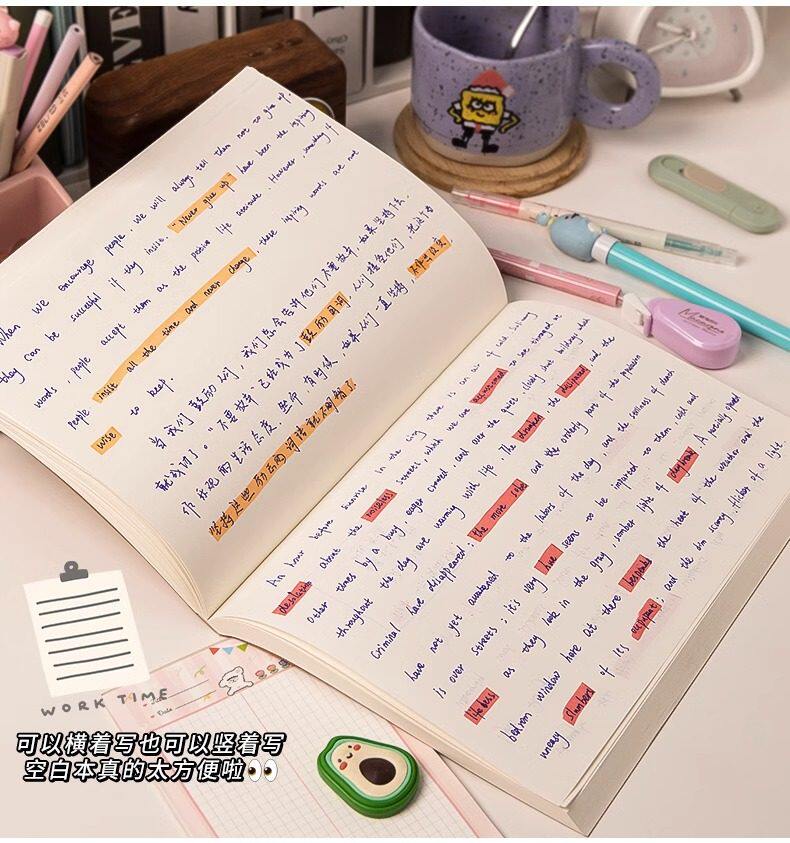 When we encourage people, we will always tell them not to give up.
they can be successful if they insist. "Never give up" have been the
words, people accept them as the positive life However, something if
people insist all the time and never change, these words are not
wise to keep
当我们鼓励人们,我们总会告诉他们不要放弃,如果坚持下去,
就成功了。"不要放弃"已经成为了鼓励的词,人们接受他们,把这个当
作乐观的生活态度 有时候,如果人们一直坚持,
坚持这些励志的词语就不明智了
An hour before sunrise in the city there is an air of cold
desolation about the noiseless streets, which we are accustomed to see thronged at
Other times by a busy, eager crowd, and over the quiet, closely shut buildings which
throughout the day are warming with life. The drunken, the dissipated and the
Criminal have disappeared; the more sober and the orderly part of the population
have not yet awakened to the labors of the day, and the stillness of death
is over streets; it's very hue seems to be imparted to them, cold and
lifeless as they look in the gray, somber light of daybreak A partially opened
bedroom window here at there bespeaks the heat of the weather and the
uneasy slumbers of its occupant; and the dim scanty flicker of a light.
WORK TIME
Date
可以横着写也可以竖着写
空白本真的太方便啦